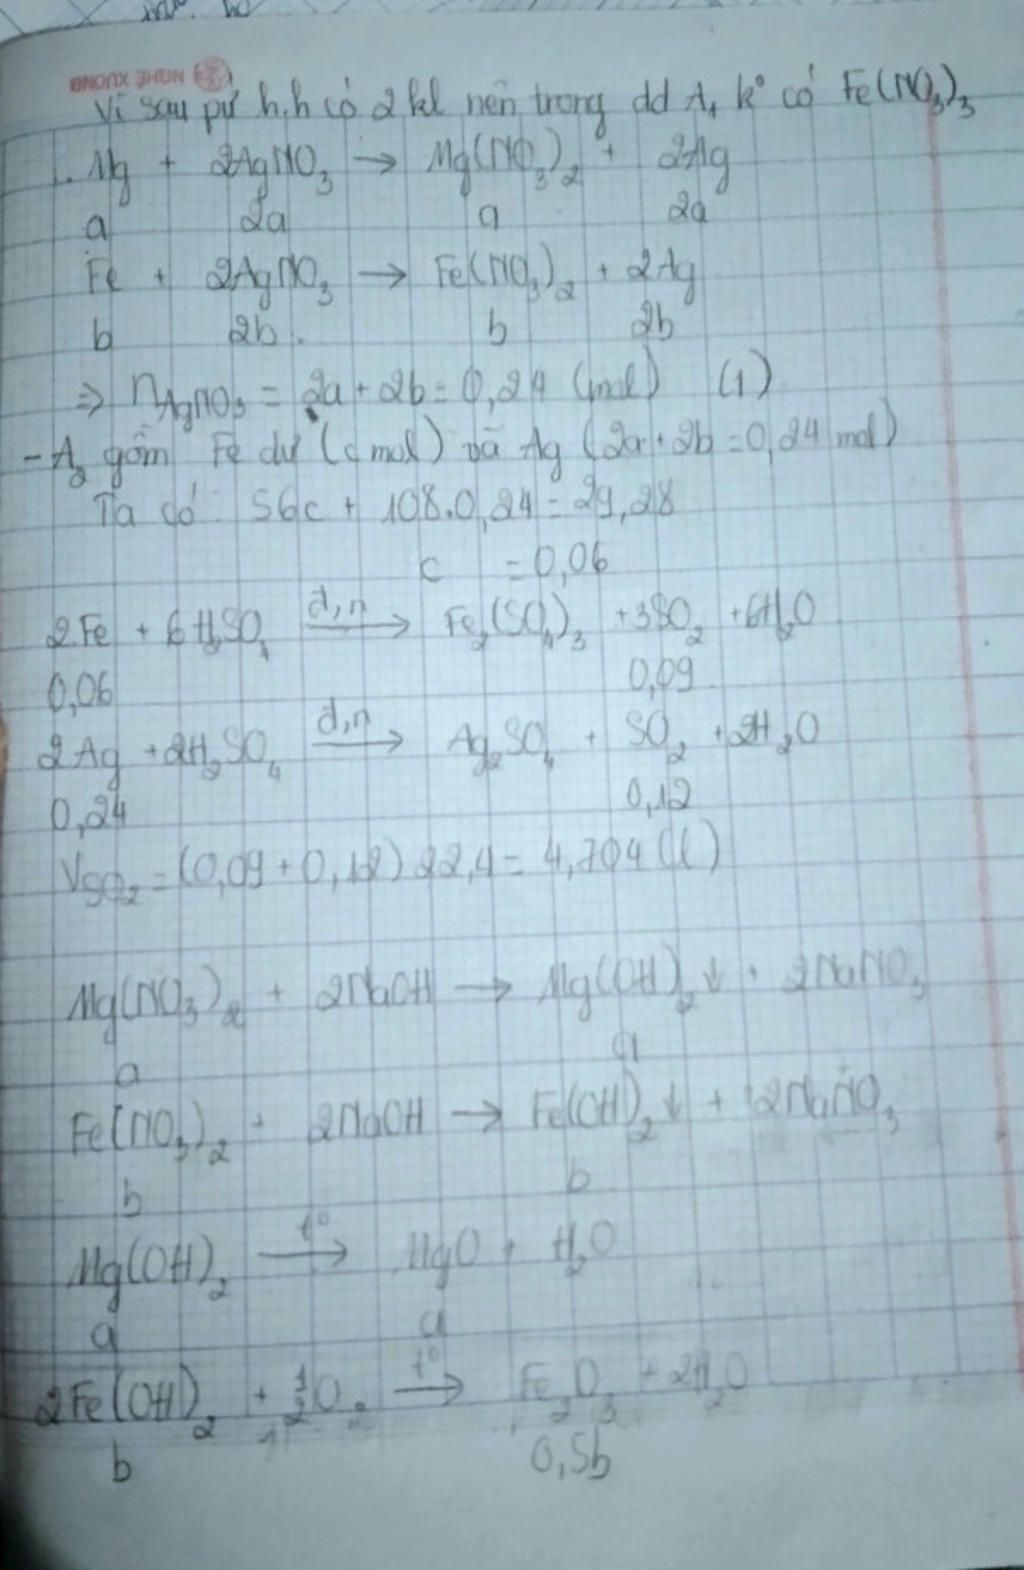 NGHE XUONG
Vì sau pư h.h có 2 kl nên trong dd A₁ k° có Fe(NO₃)₃
Mg + 2AgNO₃ → Mg(NO₃)₂ + 2Ag
a 2a a 2a
Fe + 2AgNO₃ → Fe(NO₃)₂ + 2Ag
b 2b b 2b
⇒ nAgNO₃ = 2a + 2b = 0,24 (mol) (1)
- A₂ gồm Fe dư (c mol) và Ag (2a + 2b = 0,24 mol)
Ta có: 56c + 108.0,24 = 29,28
c = 0,06
2Fe + 6H₂SO₄ đ,n → Fe₂(SO₄)₃ + 3SO₂ + 6H₂O
0,06 0,09
2Ag + 2H₂SO₄ đ,n → Ag₂SO₄ + SO₂ + 2H₂O
0,24 0,12
V SO₂ = (0,09 + 0,12) 22,4 = 4,704 (l)
Mg(NO₃)₂ + 2NaOH → Mg(OH)₂↓ + 2NaNO₃
a a
Fe(NO₃)₂ + 2NaOH → Fe(OH)₂↓ + 2NaNO₃
b b
Mg(OH)₂ t° → MgO + H₂O
a a
2Fe(OH)₂ + ½O₂ t° → Fe₂O₃ + 2H₂O
b 0,5b